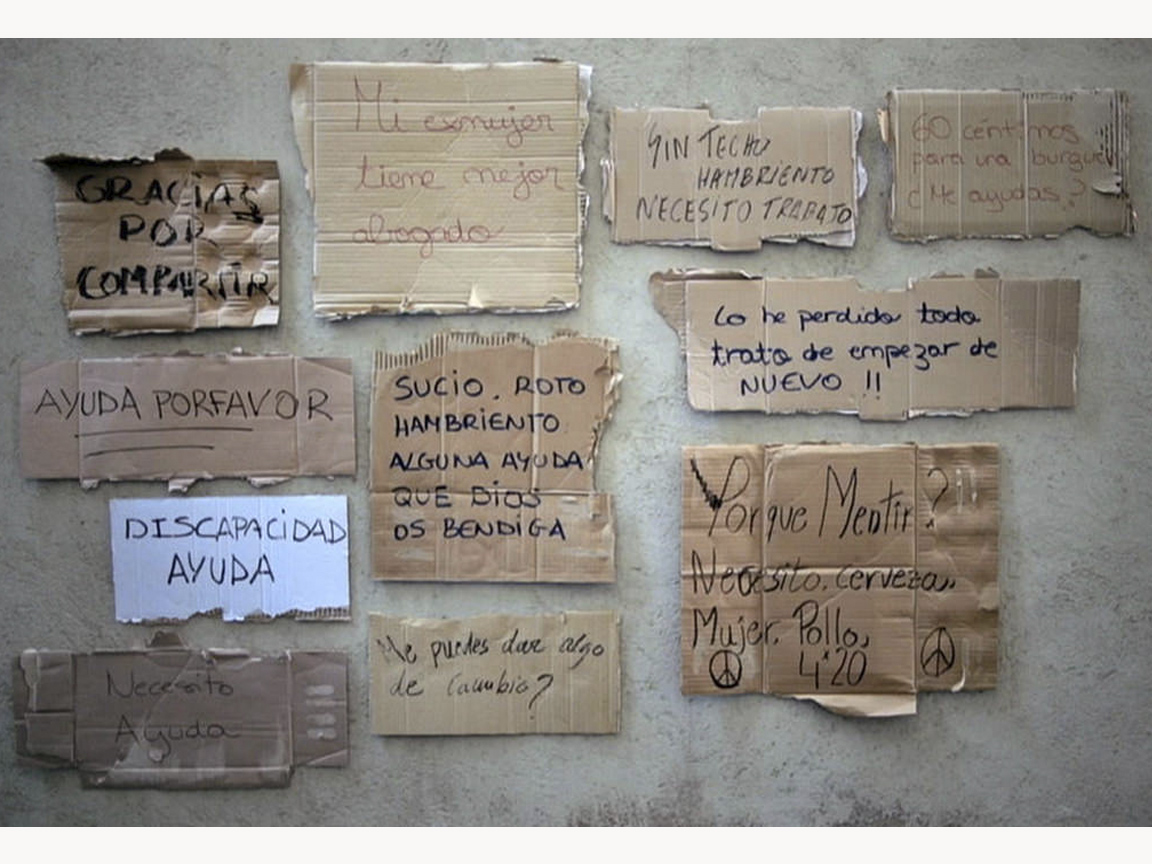 GRACIAS
POR
COMPARTIR
Mi exmujer
tiene mejor
abogado
SIN TECHO
HAMBRIENTO
NECESITO TRABAJO
60 céntimos
para una burguer
¿Me ayudas?
Lo he perdido todo
trato de empezar de
NUEVO !!
AYUDA PORFAVOR
SUCIO. ROTO
HAMBRIENTO
ALGUNA AYUDA
QUE DIOS
OS BENDIGA
DISCAPACIDAD
AYUDA
Porque Mentir?
Necesito. Cerveza,
Mujer. Pollo,
4'20
Necesito
Ayuda
Me puedes dar algo
de Cambio?